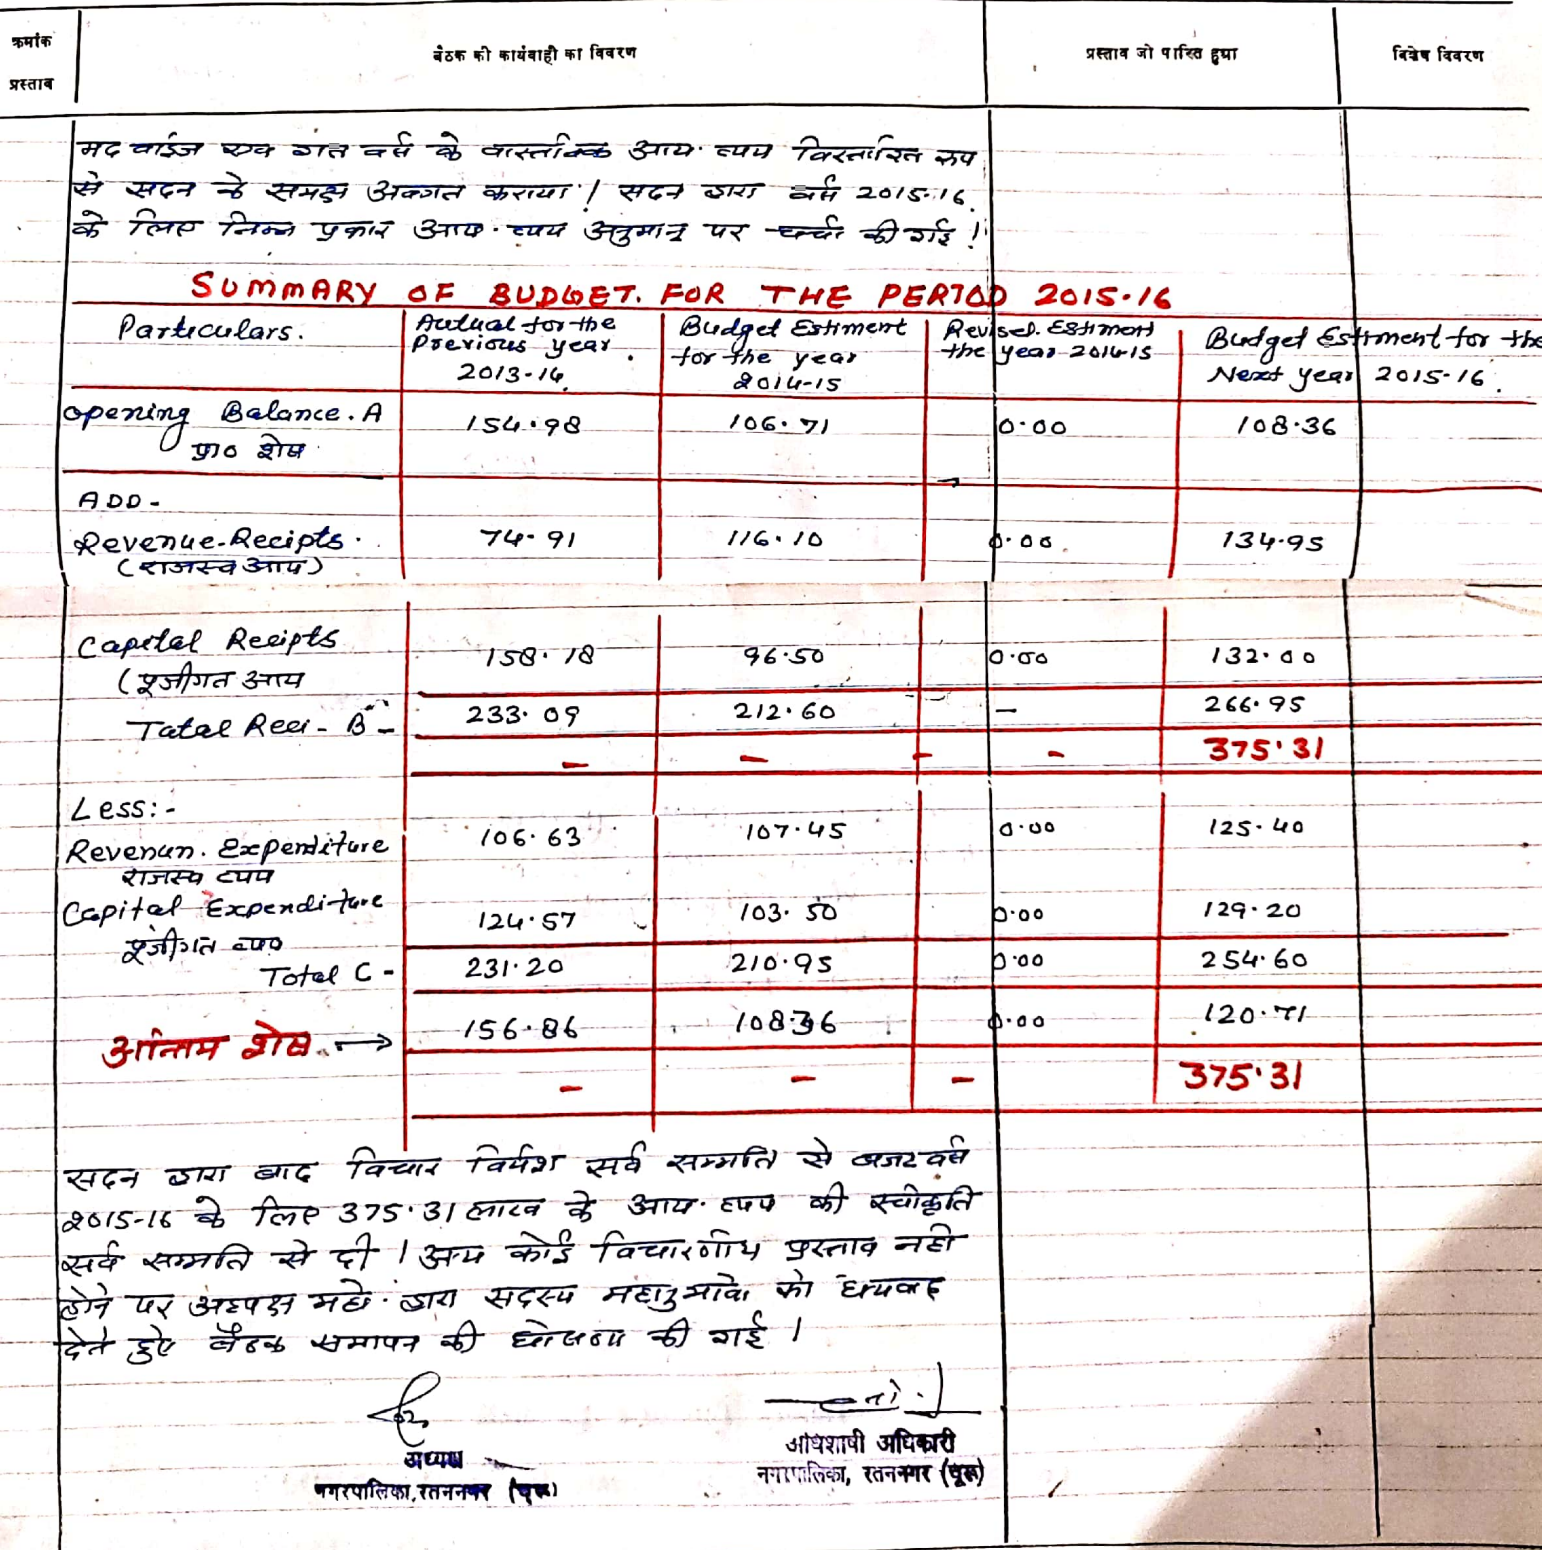 क्रमांक प्रस्ताव बैठक की कार्यवाही का विवरण प्रस्ताव जो पारित हुआ विशेष विवरण
मद वाईज एवं गत वर्ष के वास्तविक आय व्यय विस्तारित रूप
से सदन के समक्ष अवगत कराया। सदन द्वारा वर्ष 2015-16
के लिए निम्न प्रकार आय-व्यय अनुमान पर चर्चा की गई।
SUMMARY OF BUDGET. FOR THE PERIOD 2015-16
Particulars. Actual for the Previous year. 2013-14. Budget Estiment for the year 2014-15 Revised. Estiment the year 2014-15 Budget Estiment for the Next year 2015-16.
Opening Balance. A 154.98 106.71 0.00 108.36
प्रा० शेष
ADD-
Revenue-Recipts. 74.91 116.10 0.00 134.95
(राजस्व आय)
Capital Recipts 158.18 96.50 0.00 132.00
(पूंजीगत आय
Total Reci- B- 233.09 212.60 — 266.95
- - - - 375.31
Less:-
Revenun. Expenditure 106.63 107.45 0.00 125.40
राजस्व व्यय
Capital Expenditure 124.57 103.50 0.00 129.20
पूंजीगत व्यय
Total C- 231.20 210.95 0.00 254.60
अन्तिम शेष. → 156.86 108.36 0.00 120.71
- - - 375.31
सदन द्वारा बाद विचार विमर्श सर्व सम्मति से बजट वर्ष
2015-16 के लिए 375.31 लाख के आय-व्यय की स्वीकृति
सर्व सम्मति से दी। अन्य कोई विचारणीय प्रस्ताव नही
होने पर अध्यक्ष महो. द्वारा सदस्य महानुभावो को धन्यवाद
देते हुए बैठक समापन की घोषणा की गई।
अध्यक्ष
नगरपालिका, रतननगर (चूरू)
अधिशाषी अधिकारी
नगरपालिका, रतननगर (चूरू)